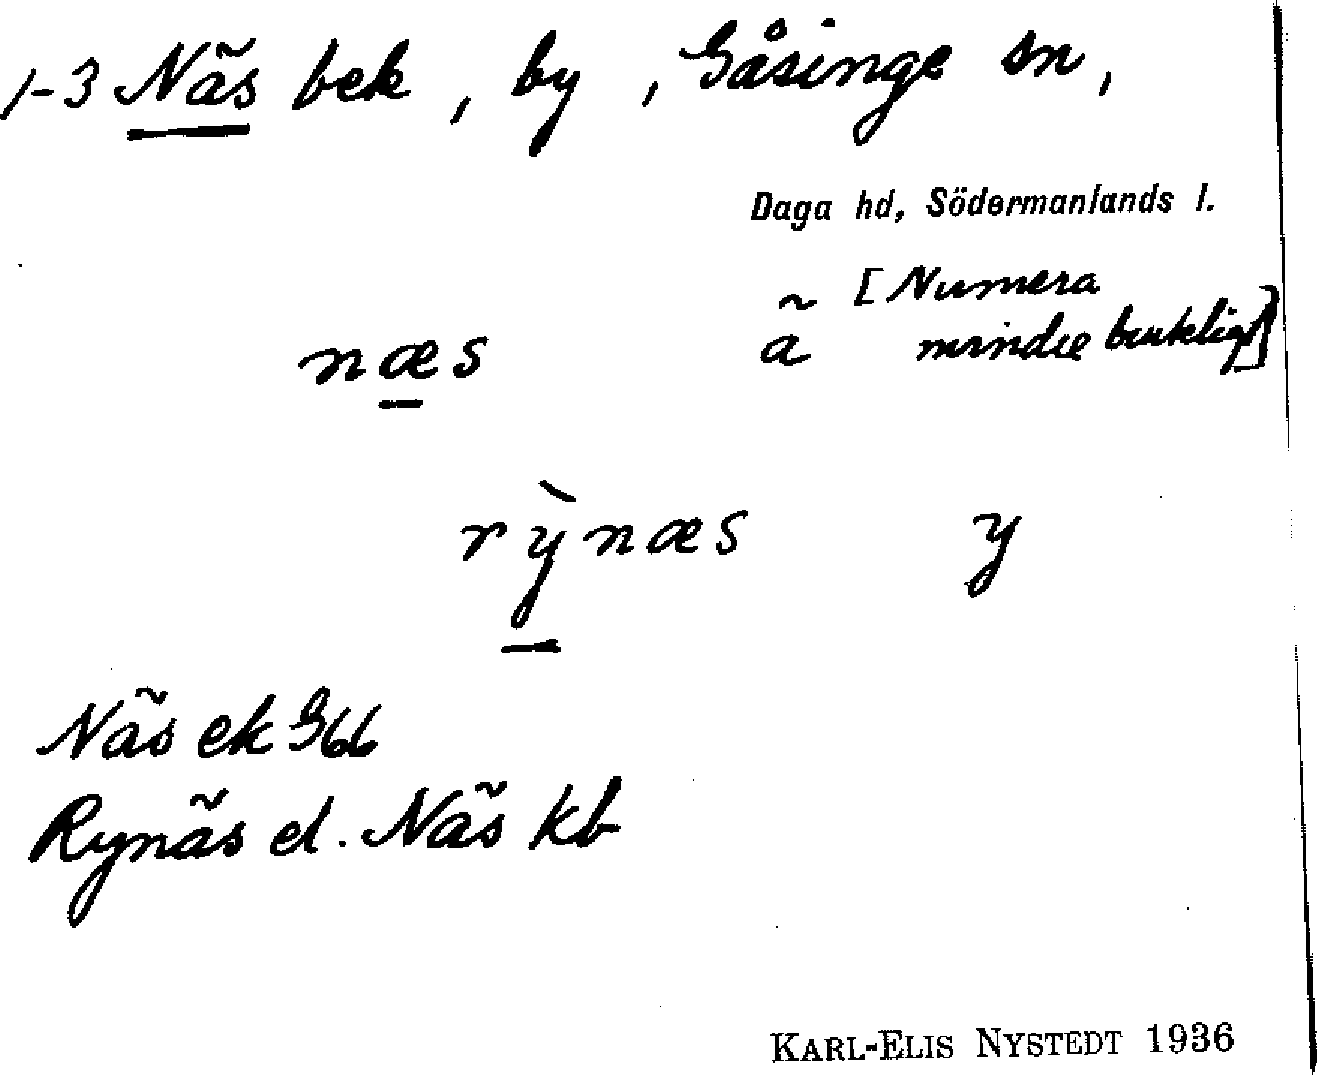 1-3 Näs bek, by, Gåsinge sn,
Daga hd, Södermanlands l.
[Numera
næs ä mindre brukligt]
rỳnæs y
Näs ek G66
Rynäs el. Näs kb
KARL-ELIS NYSTEDT 1936